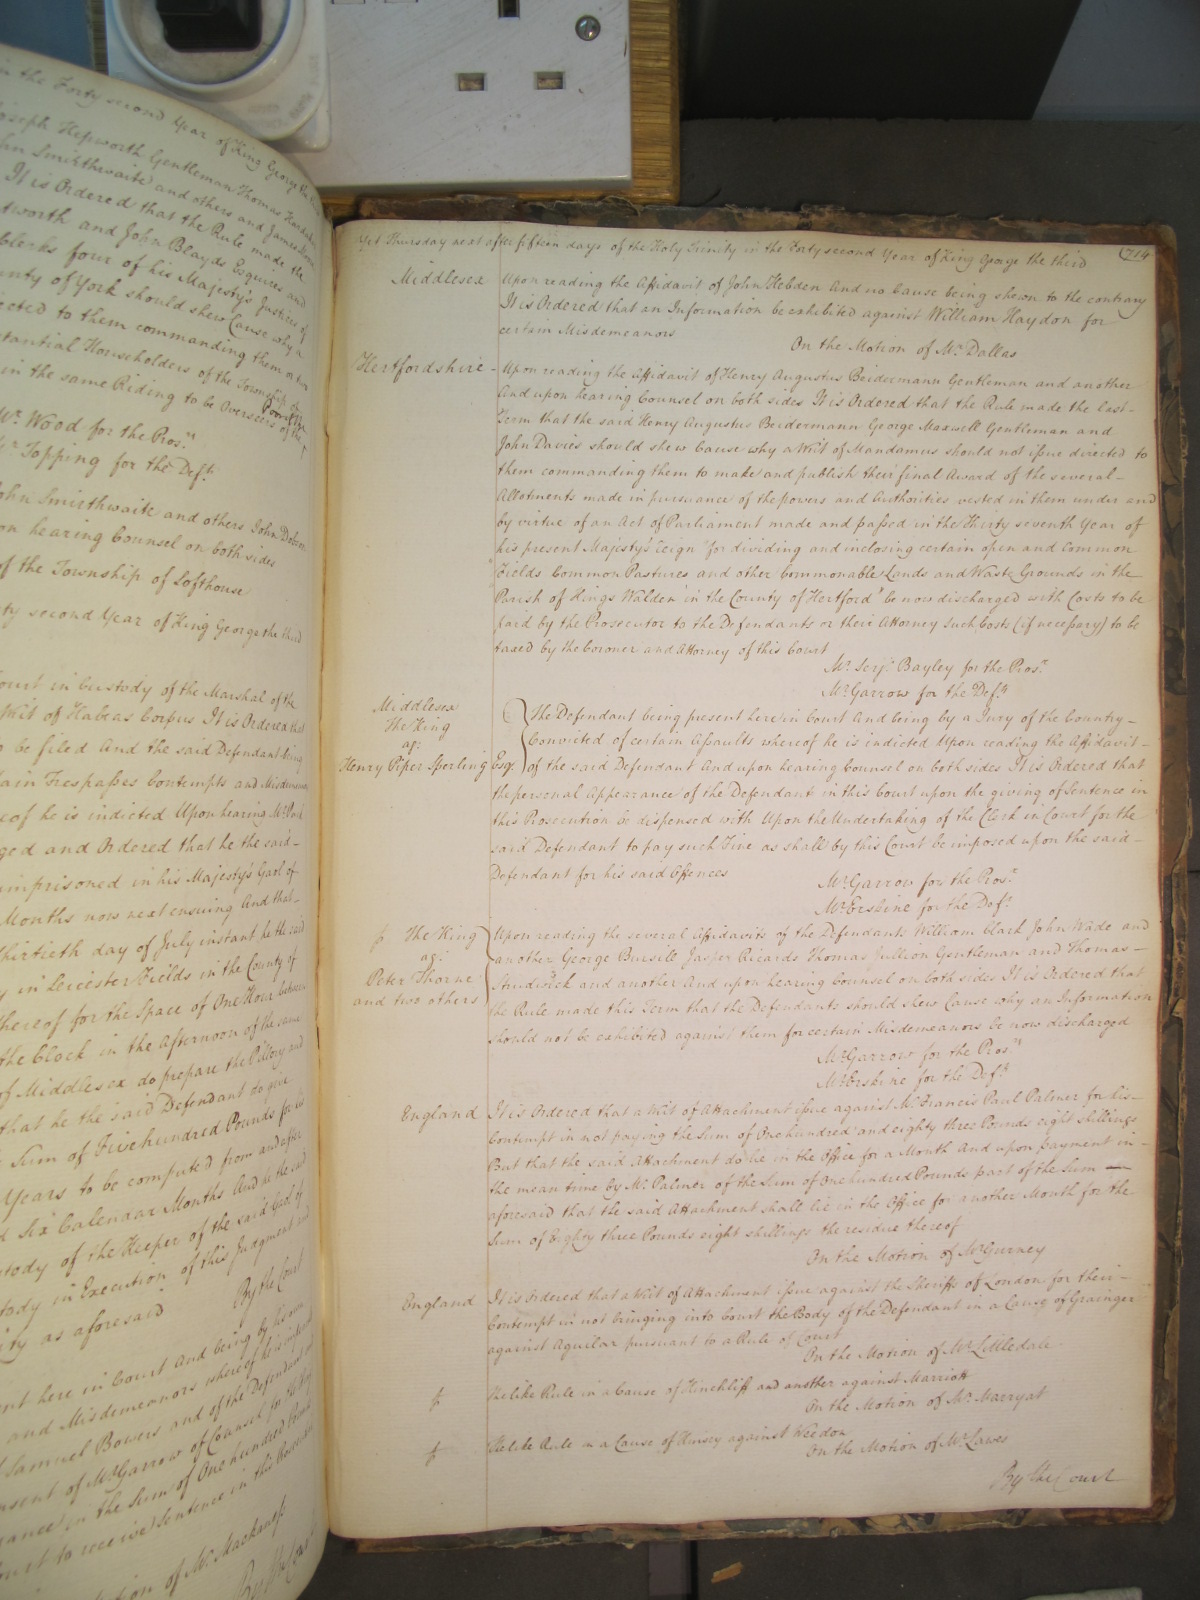 in the Forty second Year of King George the third
Joseph Hepworth Gentleman Thomas
Smirthwaite and others and James
It is Ordered that the Rule made the
and John Blayds Esquires and
four of his Majesty's Justices of
of York should shew Cause why a
to them commanding them or two
Householders of the Township
in the same Riding to be Overseers of the
Poor
Mr. Wood for the Prosrs.
Mr. Topping for the Defts.
John Smirthwaite and others John
on hearing Counsel on both sides
of the Township of Lofthouse
second Year of King George the third
Court in Custody of the Marshal of the
Writ of Habeas Corpus It is Ordered that
to be filed And the said Defendant being
Trespasses Contempts and Misdemeanors
of he is indicted Upon hearing Mr.
and Ordered that he the said
imprisoned in his Majesty's Gaol of
Months now next ensuing And that
thirtieth day of July instant he the said
in Leicester Fields in the County of
thereof for the Space of One Hour between
the Clock in the afternoon of the same
of Middlesex do prepare the Pillory and
that he the said Defendant do give
Sum of Five hundred Pounds for his
Years to be computed from and after
Six Calendar Months And he the said
Custody of the Keeper of the said Gaol of
in Execution of this Judgment and
as aforesaid
By the Court
here in Court And being by his own
and Misdemeanors whereof he is indicted
Samuel Bowers and of the Defendant
of Mr. Garrow of Counsel for the
in the Sum of One hundred Pounds
to receive Sentence in this Prosecution
of Mr. Mackaness
By the Court
Yet Thursday next after fifteen days of the Holy Trinity in the Forty second Year of King George the third
714
Middlesex Upon reading the Affidavit of John Hebden And no Cause being shewn to the contrary
It is Ordered that an Information be exhibited against William Haydon for
certain Misdemeanors
On the Motion of Mr. Dallas
Hertfordshire - Upon reading the Affidavit of Henry Augustus Beidermann Gentleman and another
And upon hearing Counsel on both sides It is Ordered that the Rule made the last-
Term that the said Henry Augustus Beidermann George Maxwell Gentleman and
John Davies should shew Cause why a Writ of Mandamus should not issue directed to
them commanding them to make and publish their final Award of the several-
Allotments made in pursuance of the powers and Authorities vested in them under and
by virtue of an Act of Parliament made and passed in the Thirty seventh Year of
his present Majesty's reign "for dividing and inclosing certain open and Common
"Fields Common Pastures and other Commonable Lands and Waste Grounds in the
Parish of Kings Walden in the County of Hertford" be now discharged with Costs to be
paid by the Prosecutor to the Defendants or their Attorney such Costs (if necessary) to be
taxed by the Coroner and Attorney of this Court
Mr. Serjt. Bayley for the Prosr.
Mr. Garrow for the Defts.
Middlesex
The King
agt.
Henry Piper Sperling Esqr.
The Defendant being present here in Court And being by a Jury of the Country-
Convicted of certain Assaults whereof he is indicted Upon reading the Affidavit-
of the said Defendant And upon hearing Counsel on both sides It is Ordered that
the personal Appearance of the Defendant in this Court upon the giving of Sentence in
this Prosecution be dispensed with Upon the Undertaking of the Clerk in Court for the
said Defendant to pay such Fine as shall by this Court be imposed upon the said-
Defendant for his said Offences
Mr. Garrow for the Prosr.
Mr. Erskine for the Deft.
The King
agt.
Peter Thorne
and two others
Upon reading the several Affidavits of the Defendants William Clark John Wade and
another George Bursill Jasper Ricards Thomas Jullion Gentleman and Thomas-
Strudwick and another And upon hearing Counsel on both sides It is Ordered that
the Rule made this Term that the Defendants should shew Cause why an Information
should not be exhibited against them for certain Misdemeanors be now discharged
Mr. Garrow for the Prosrs.
Mr. Erskine for the Defts.
England It is Ordered that a Writ of Attachment issue against Mr. Francis Paul Palmer for his-
Contempt in not paying the Sum of One hundred and eighty three Pounds eight shillings
But that the said Attachment do lie in the Office for a Month And upon payment in-
the mean time by Mr. Palmer of the Sum of One hundred Pounds part of the Sum
aforesaid that the said Attachment shall lie in the Office for another Month for the
Sum of Eighty three Pounds eight shillings the residue thereof
On the Motion of Mr. Gurney
England It is Ordered that a Writ of Attachment issue against the Sheriffs of London for their-
Contempt in not bringing into Court the Body of the Defendant in a Cause of Grainger
against Aguilar pursuant to a Rule of Court
On the Motion of Mr. Littledale
The like Rule in a Cause of Hinchliff and another against Marriott
On the Motion of Mr. Marryat
The like Rule in a Cause of Kinsey against Weedon
On the Motion of Mr. Lawes
By the Court